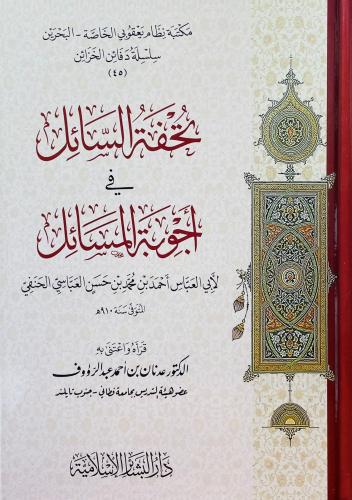 مكتبة نظام يعقوبي الخاصة - البحرين
سلسلة دفائن الخزائن
(٤٥)
تحفة السائل
في
أجوبة المسائل
لأبي العباس أحمد بن محمد بن حسن العباسي الحنفي
المتوفى سنة ٩١٠هـ
قرأه واعتنى به
الدكتور عدنان بن أحمد عبد الرؤوف
عضو هيئة التدريس بجامعة فطاني - جنوب تايلند
دار البشائر الإسلامية